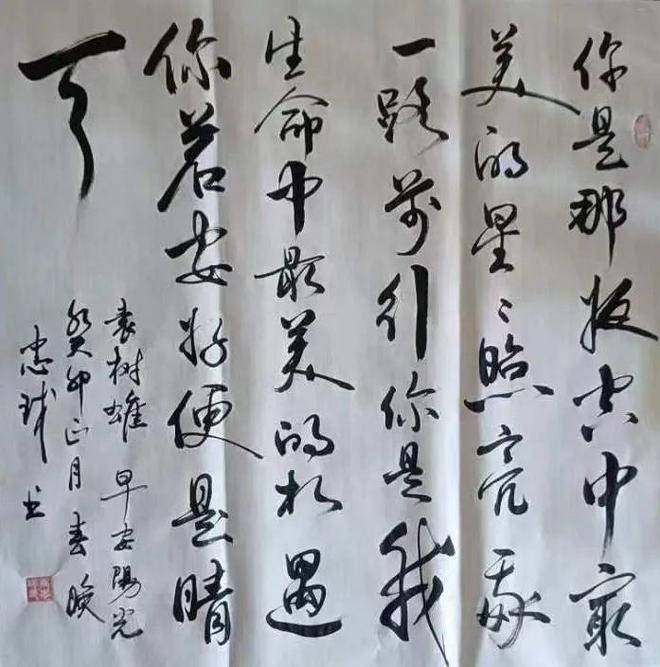 你是那夜空中最
美的星星照亮我
一路前引你是我
生命中最美的相遇
你若安好便是晴
天
袁树雄 早安陽光
癸卯正月春
忠球书